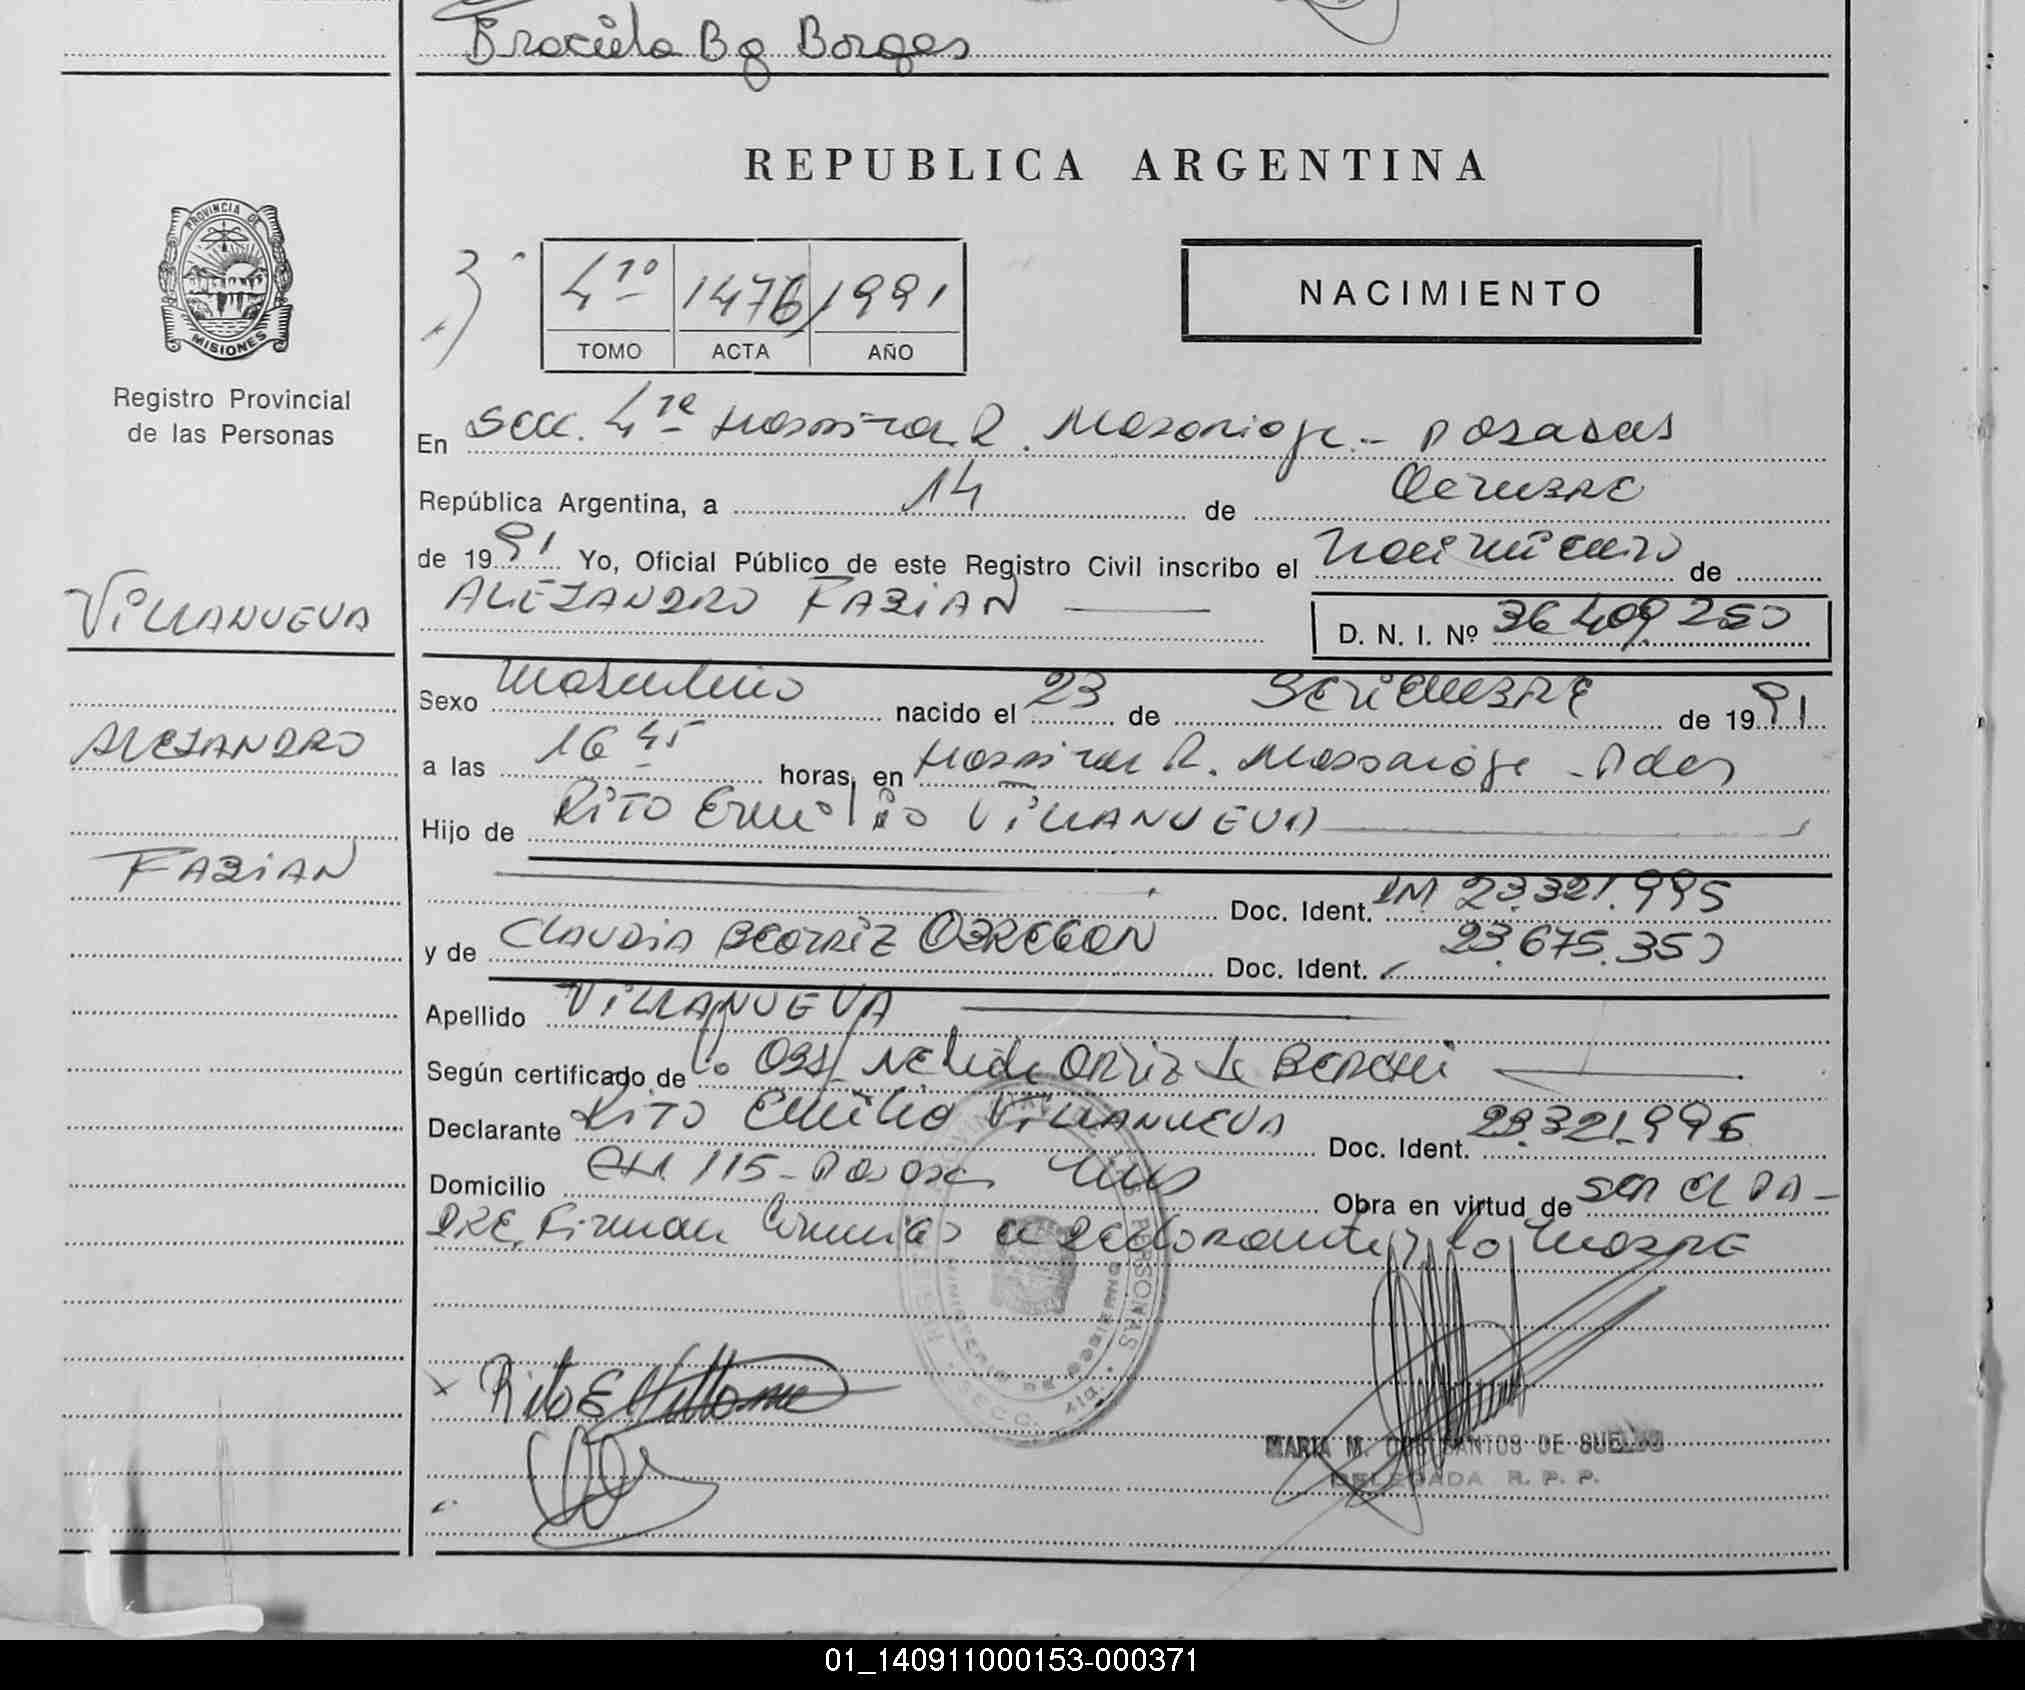 Graciela B g Borges
REPUBLICA ARGENTINA
PROVINCIA DE
MISIONES
Registro Provincial
de las Personas
3º
4ᵗᵒ 1476 1991
TOMO ACTA AÑO
NACIMIENTO
En Secc. 4ᵗᵃ Hospital R. Madariaga - Posadas
República Argentina, a 14 de Octubre
de 1991 Yo, Oficial Público de este Registro Civil inscribo el nacimiento de
ALEJANDRO FABIAN D. N. I. Nº 36 409 250
VILLANUEVA
ALEJANDRO
FABIAN
Sexo Masculino nacido el 23 de SETIEMBRE de 1991
a las 16 45 horas, en Hospital R. Madariaga - Pdas
Hijo de RITO Emilio VILLANUEVA
Doc. Ident. DNI 23.321.995
y de CLAUDIA BEATRIZ OBREGON Doc. Ident. 23.675.350
Apellido VILLANUEVA
Según certificado de la Obst. Nelida ORTIZ de
Declarante RITO Emilio VILLANUEVA Doc. Ident. 23.321.995
Domicilio CH 115 - Posadas Mnes Obra en virtud de ser el PA-
DRE. Firman conmigo el declarante y la MADRE
REGISTRO PROVINCIAL DE LAS PERSONAS
MINISTERIO DE GOBIERNO
SECC. 4ta.
Rito E Villanueva
MARIA M. DOS SANTOS DE SUELDO
DELEGADA R. P. P.
01_140911000153-000371